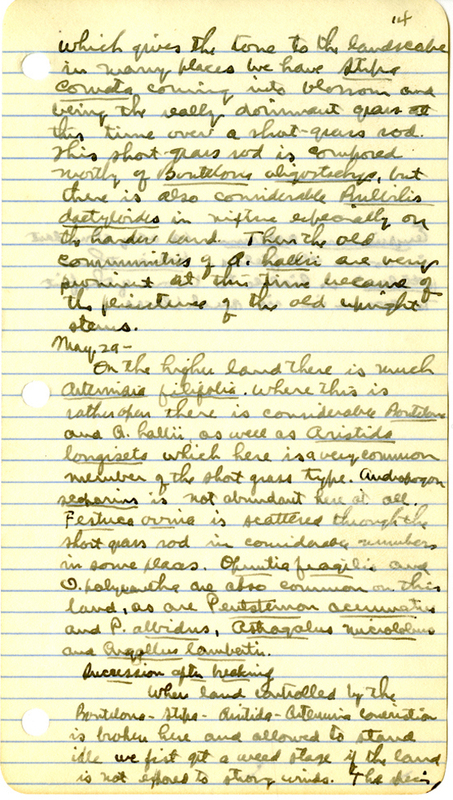 14
which gives the tone to the landscape
in many places we have Stipa
Comata coming into blossom and
being the really dominant grass at
this time over a short-grass sod.
This short-grass sod is composed
mostly of Bouteloua oligostachya, but
there is also considerable Bulbilis
dactyloides in mixture especially on
the harder land. Then the old
communities of A. hallii are very
prominent at this time because of
the persistence of the old upright
stems.
May 29-
On the higher land there is much
Artemisia filifolia. Where this is
rather open there is considerable Bouteloua
and A. hallii, as well as Aristida
longiseta which here is a very common
member of the short grass type. Andropogon
scoparius is not abundant here at all.
Festuca ovina is scattered through the
short grass sod in considerable numbers
in some places. Opuntia fragilis and
O. polyacantha are also common on this
land, as are Pentstemon acuminatus
and P. albidus, Astragalus microlobus
and Aragallus lamberti.
Succession after breaking
When land controlled by the
Bouteloua - Stipa - Aristida - Artemisia
is broken here and allowed to stand
idle we first get a weed stage if the land
is not exposed to strong winds. The